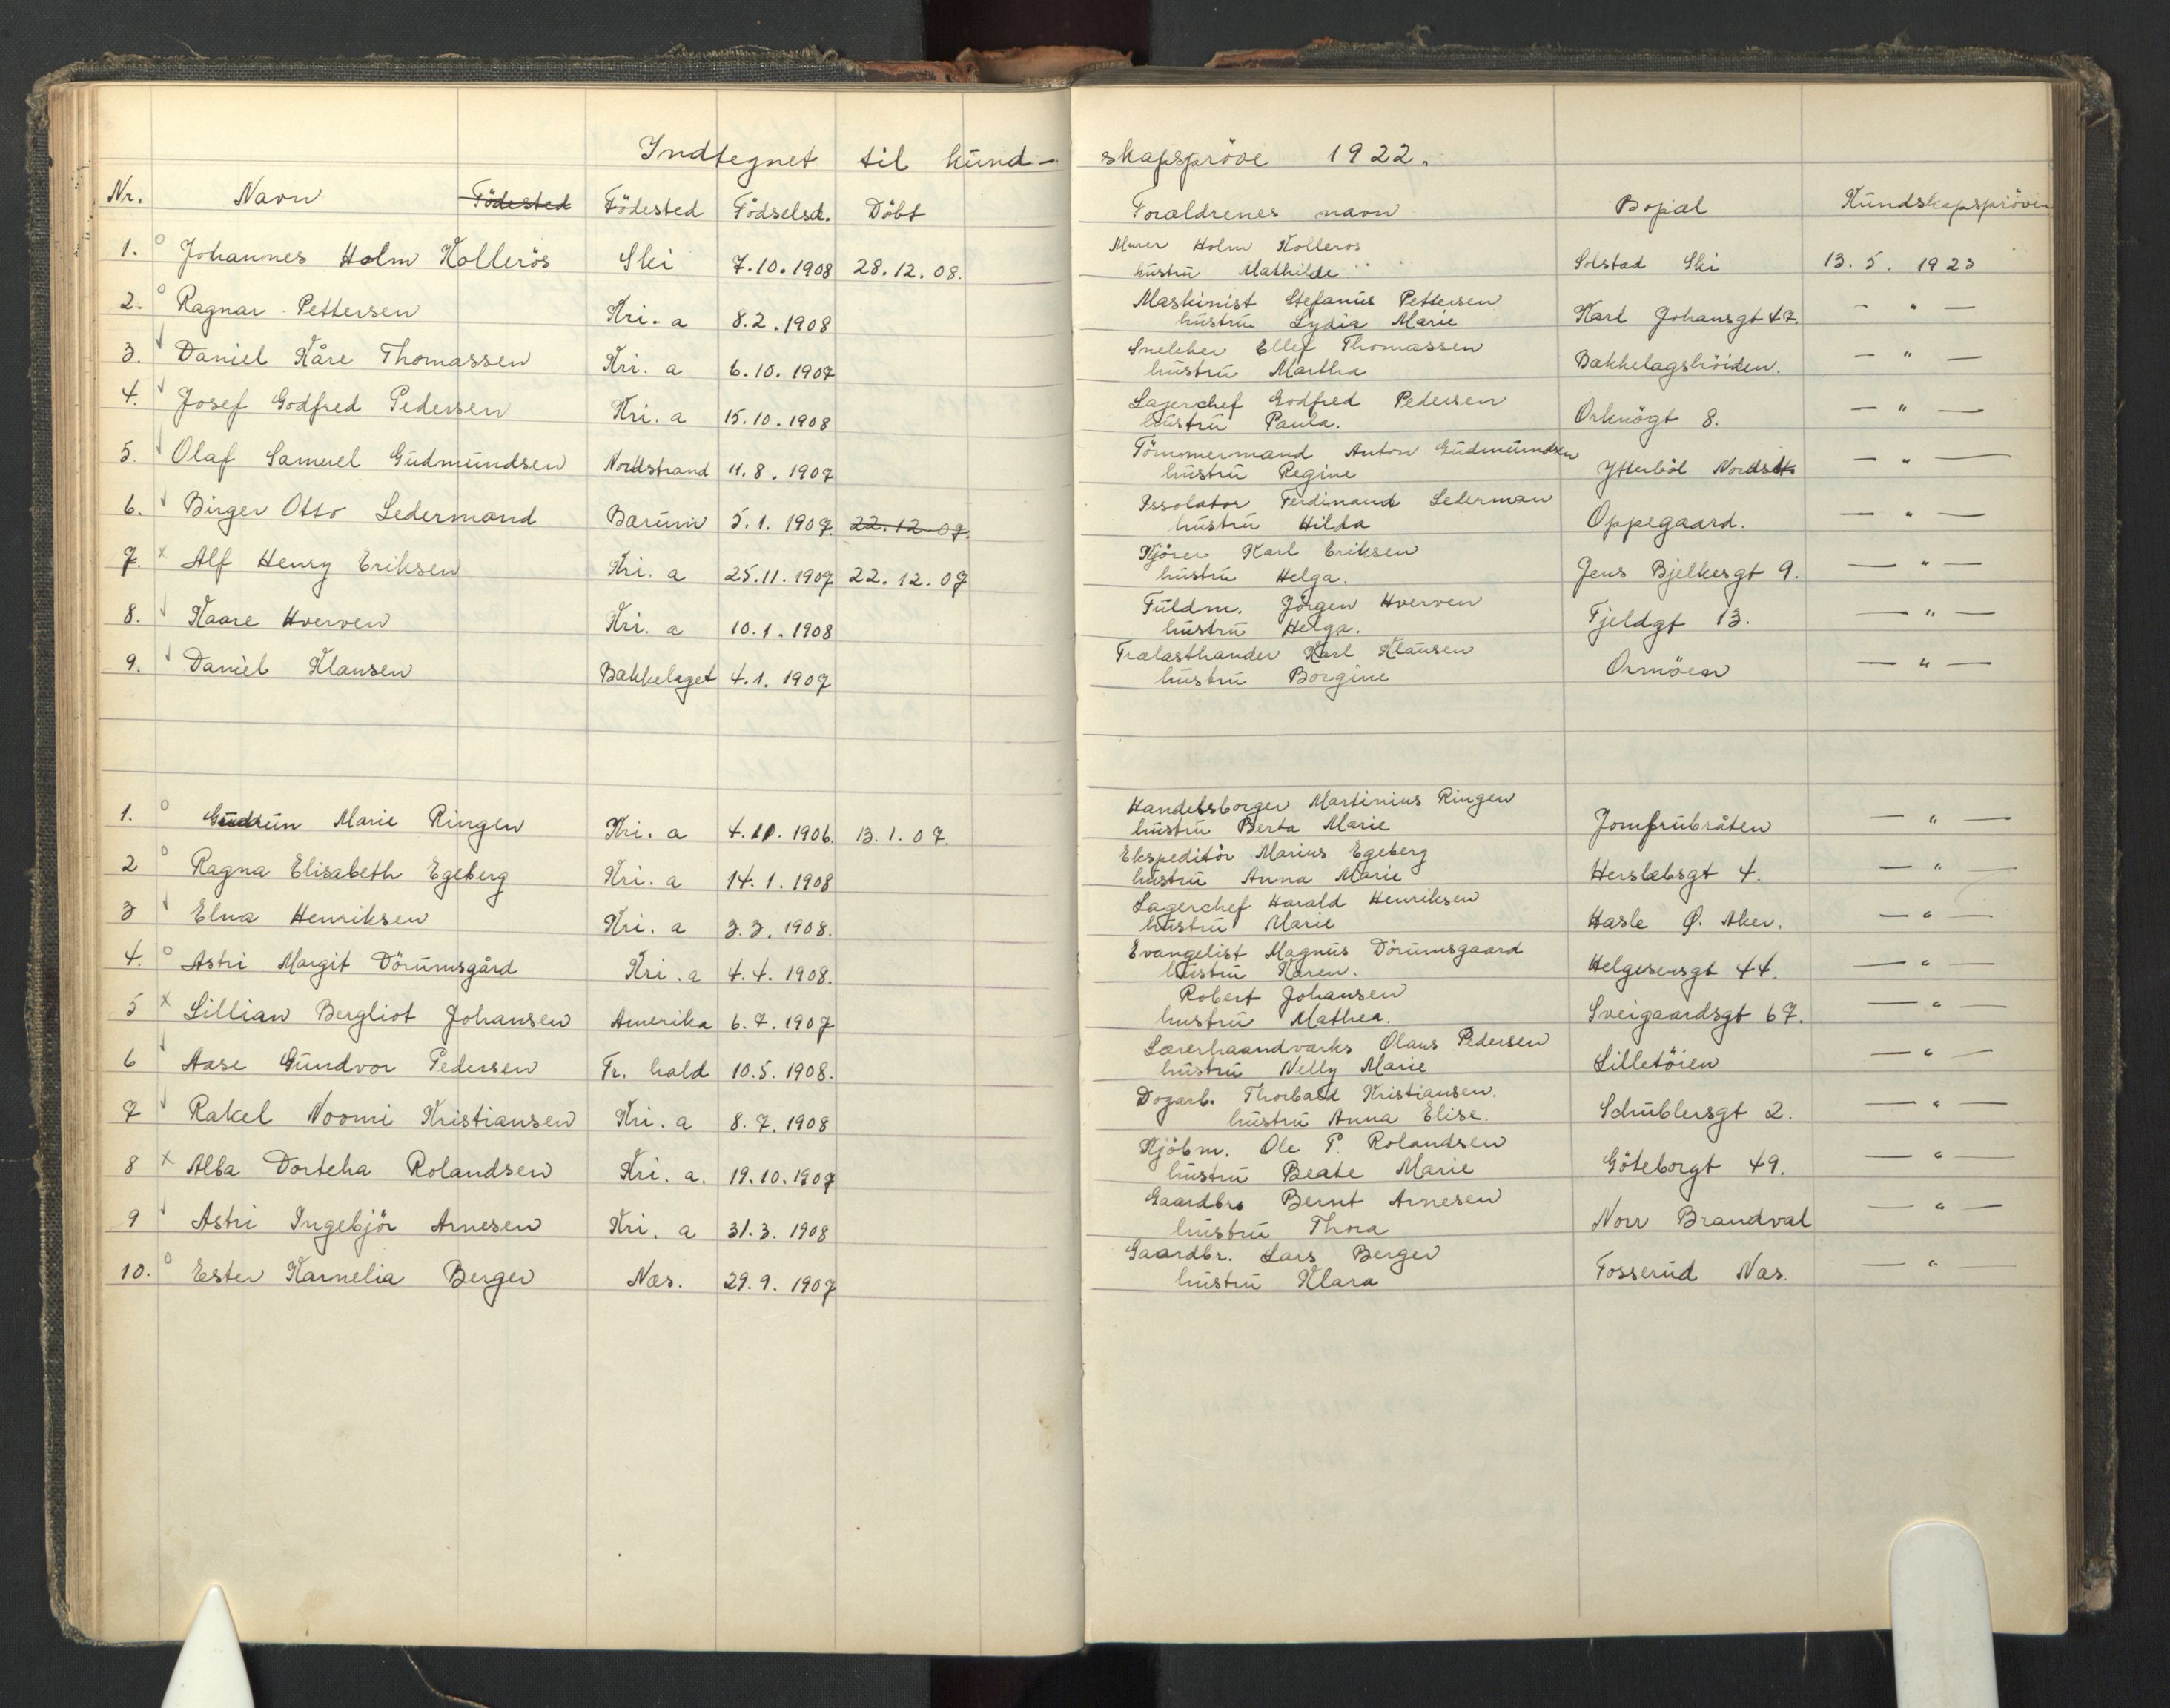 Indtegnet til kund-skapspröve 1922.
Nr. Navn Födested Födested Födselsd. Döbt Forældrenes navn Bopæl Kundskapspröven
1. o Johannes Holm Kollerös Ski 7.10.1908 28.12.08. Murer Holm Kollerös
hustru Mathilde Solstad Ski 13.5.1923
2. o Ragnar Pettersen Kri.a 8.2.1908 Maskinist Stefanus Pettersen
hustru Lydia Marie Karl Johansgt 47. — " —
3. ✓ Daniel Kåre Thomassen Kri. a 6.10.1907 Snekker Ellef Thomassen
hustru Martha Bækkelagshöiden. — " —
4. ✓ Josef Godfred Pedersen Kri. a 15.10.1908 Lagerchef Godfred Pedersen
hustru Paula. Orknögt 8. — " —
5. ✓ Olaf Samuel Gudmundsen Nordstrand 11.8.1907 Tömmermand Anton Gudmundsen
hustru Regine Ytterböl Nordst. — " —
6. ✓ Birger Otto Ledermand Bærum 5.1.1907. 22.12.07. Issolatør Ferdinand Lederman
hustru Hilda Oppegaard. — " —
7. x Alf Henry Eriksen Kri. a 25.11.1907 22.12.07 Kjörer Karl Eriksen
hustru Helga. Jens Bjelkesgt 9. — " —
8. ✓ Kaare Hverven Kri. a 10.1.1908 Fuldm. Jörgen Hverven
hustru Helga. Fjeldgt 13. — " —
9. ✓ Daniel Klausen Bækkelaget 4.1.1907 Trælasthander Karl Klausen
hustru Borgine Ormöen — " —
1. o Gudrun Marie Ringen Kri. a 4.11.1906. 13.1.07. Handelsborger Martinius Ringen
hustru Berta Marie Jomfrubråten — " —
2 o Ragna Elisabeth Egeberg Kri. a 14.1.1908 Ekspeditör Marius Egeberg
hustru Anna Marie Herslebsgt 4. — " —
3 ✓ Elna Henriksen Kri. a 3.3.1908. Lagerchef Harald Henriksen
hustru Marie Hasle Ø. Aker. — " —
4. o Astri Margit Dörumsgård Kri. a 4.4.1908. Evangelist Magnus Dörumsgaard
hustru Karen. Helgesensgt 44. — " —
5 x Lillian Bergliot Johansen Amerika 6.7.1907 Robert Johansen
hustru Mathea. Sveigaardsgt 67. — " —
6 ✓ Aase Gundvor Pedersen Fr. hald 10.5.1908. Lærerhaandværks Olaus Pedersen
hustru Nelly Marie Lilletöien — " —
7 ✓ Rakel Noomi Kristiansen Kri. a 8.7.1908 Dogarb. Thorbald Kristiansen.
hustru Anna Elise. Schüblersgt 2. — " —
8 x Alba Dorteha Rolandsen Kri. a. 19.10.1907 Kjöbm. Ole P. Rolandsen
hustru Beate Marie Göteborgt 49. — " —
9 ✓ Astri Ingebjör Arnesen Kri. a 31.3.1908 Gaardbr. Bernt Arnesen
hustru Thora Norr Brandval — " —
10. o Ester Karnelia Berger Næs. 29.9.1907 Gaardbr. Lars Berger
hustru Klara Fosserud Næs. — " —